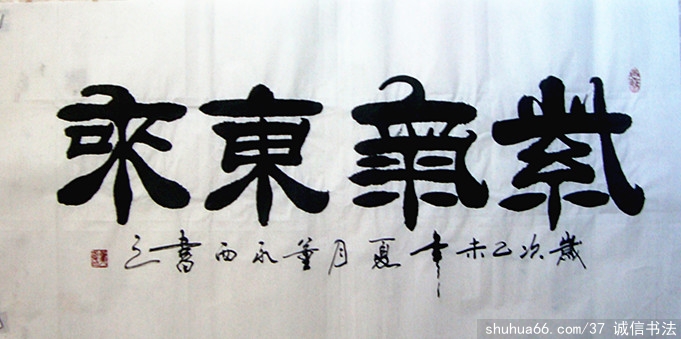 紫氣東來
歲次乙未年夏月董永西書之
shuhua66.com/37 诚信书法